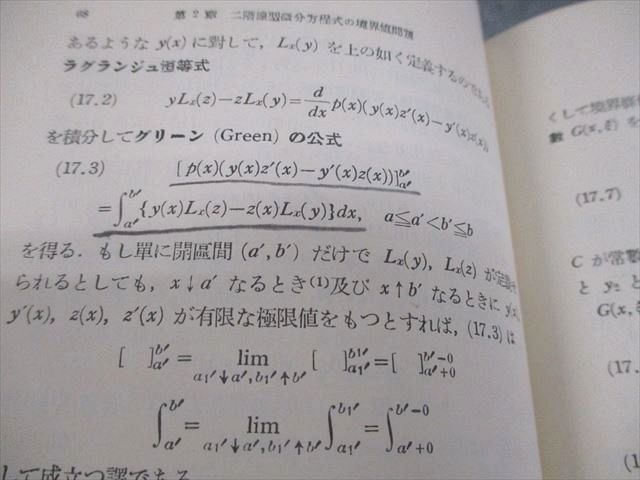 68 第2章 二階線型微分方程式の境界値問題
あるような y(x) に對して, Lx(y) を上の如く定義するのである
ラグランジュ恒等式
(17.2) yLx(z)−zLx(y)=d/dx p(x)(y(x)z′(x)−y′(x)z(x))
を積分してグリーン (Green) の公式
(17.3) [p(x)(y(x)z′(x)−y′(x)z(x))]_{a′}^{b′}
=∫_{a′}^{b′}{y(x)Lx(z)−z(x)Lx(y)}dx, a≦a′<b′≦b
を得る. もし單に開區間 (a′, b′) だけで Lx(y), Lx(z) が定義
られるとしても, x↓a′ なるとき(1)及び x↑b′ なるときに y(x),
y′(x), z(x), z′(x) が有限な極限値をもつとすれば, (17.3) は
[ ]_{a′}^{b′} = lim_{a₁′↓a′, b₁′↑b′} [ ]_{a₁′}^{b₁′} = [ ]_{a′+0}^{b′−0}
∫_{a′}^{b′} = lim_{a₁′↓a′, b₁′↑b′} ∫_{a₁′}^{b₁′} = ∫_{a′+0}^{b′−0}
して成立つ譯である
くして境界
數 G(x, ξ) を
(17.7)
C が常數
と y₂ と
G(x,
(17.
(1